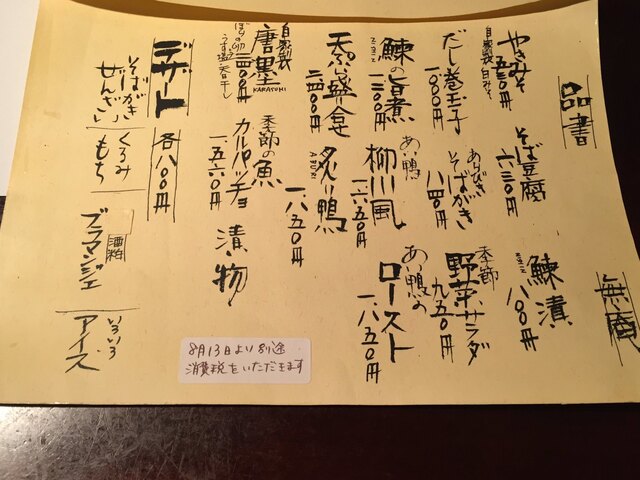 品書
無庵
やきみそ
自家製 白みそ
五五〇円
そば豆腐
六三〇円
鰊漬
八〇〇円
だし巻玉子
一〇〇〇円
あらびき
そばがき
八四〇円
季節
野菜サラダ
九五〇円
鰊の旨煮
一二〇〇円
あい鴨
柳川風
一六五〇円
あい鴨の
ロースト
一八五〇円
天ぷら盛合せ
二四〇〇円
炙り鴨
ABURI
一八五〇円
自家製
唐墨
KARASUMI
ぼらの卵
季節の魚
カルパッチョ
一五六〇円
漬物
デザート
各八〇〇円
そばがき
ぜんざい
くるみ
もち
酒粕
ブラマンジェ
いろいろ
アイス
8月13日より別途
消費税をいただきます